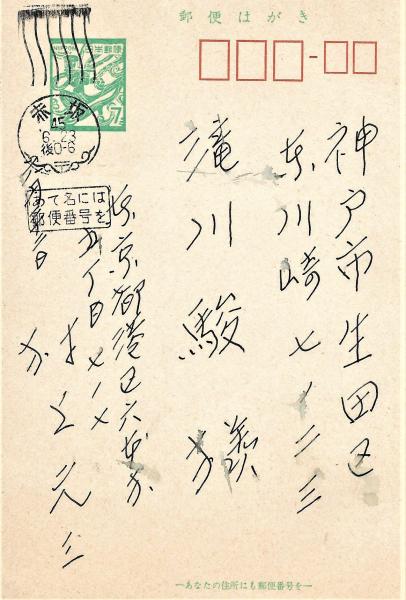 郵便はがき
日本郵便
7
赤坂
45
6.23
後0-6
あて名には
郵便番号を
神戸市生田区
東川崎七ノ二三
滝川駿 様
東京都港区六本木
五丁目
村上元三
—あなたの住所にも郵便番号を—